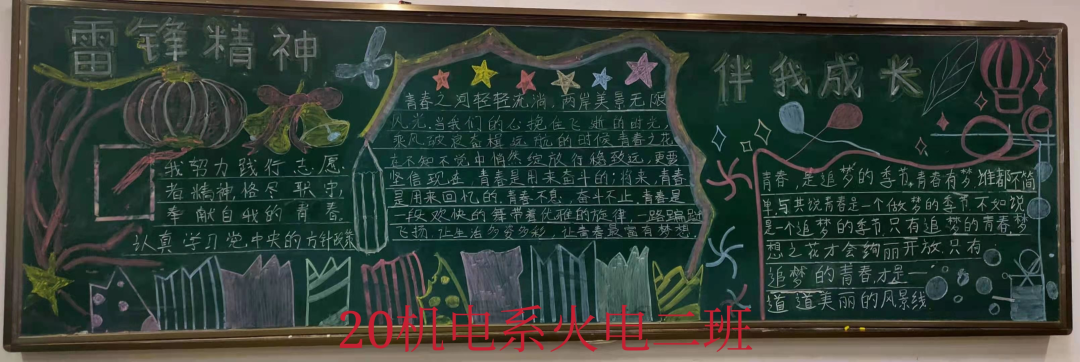 雷锋精神
伴我成长
我努力践行志愿
者精神,恪尽职守,
奉献自我的青春,
认真学习党中央的方针政策
青春之河轻轻流淌,两岸美景无限
风光,当我们的心挽住飞逝的时光,
乘风破浪奋楫远航的时候青春之花
在不知不觉中悄然绽放行稳致远,更要
坚信现在,青春是用来奋斗的;将来,青春
是用来回忆的,青春不息,奋斗不止,青春是
一段欢快的舞带着优雅的旋律,一路翩跹
飞扬,让生活多姿多彩,让青春最富有梦想
青春,是追梦的季节,青春有梦,谁都不简
单,与其说青春是一个做梦的季节,不如说
是一个追梦的季节,只有追梦的青春,梦
想之花才会绚丽开放.只有
追梦的青春,才是一
道道美丽的风景线
20机电系火电二班